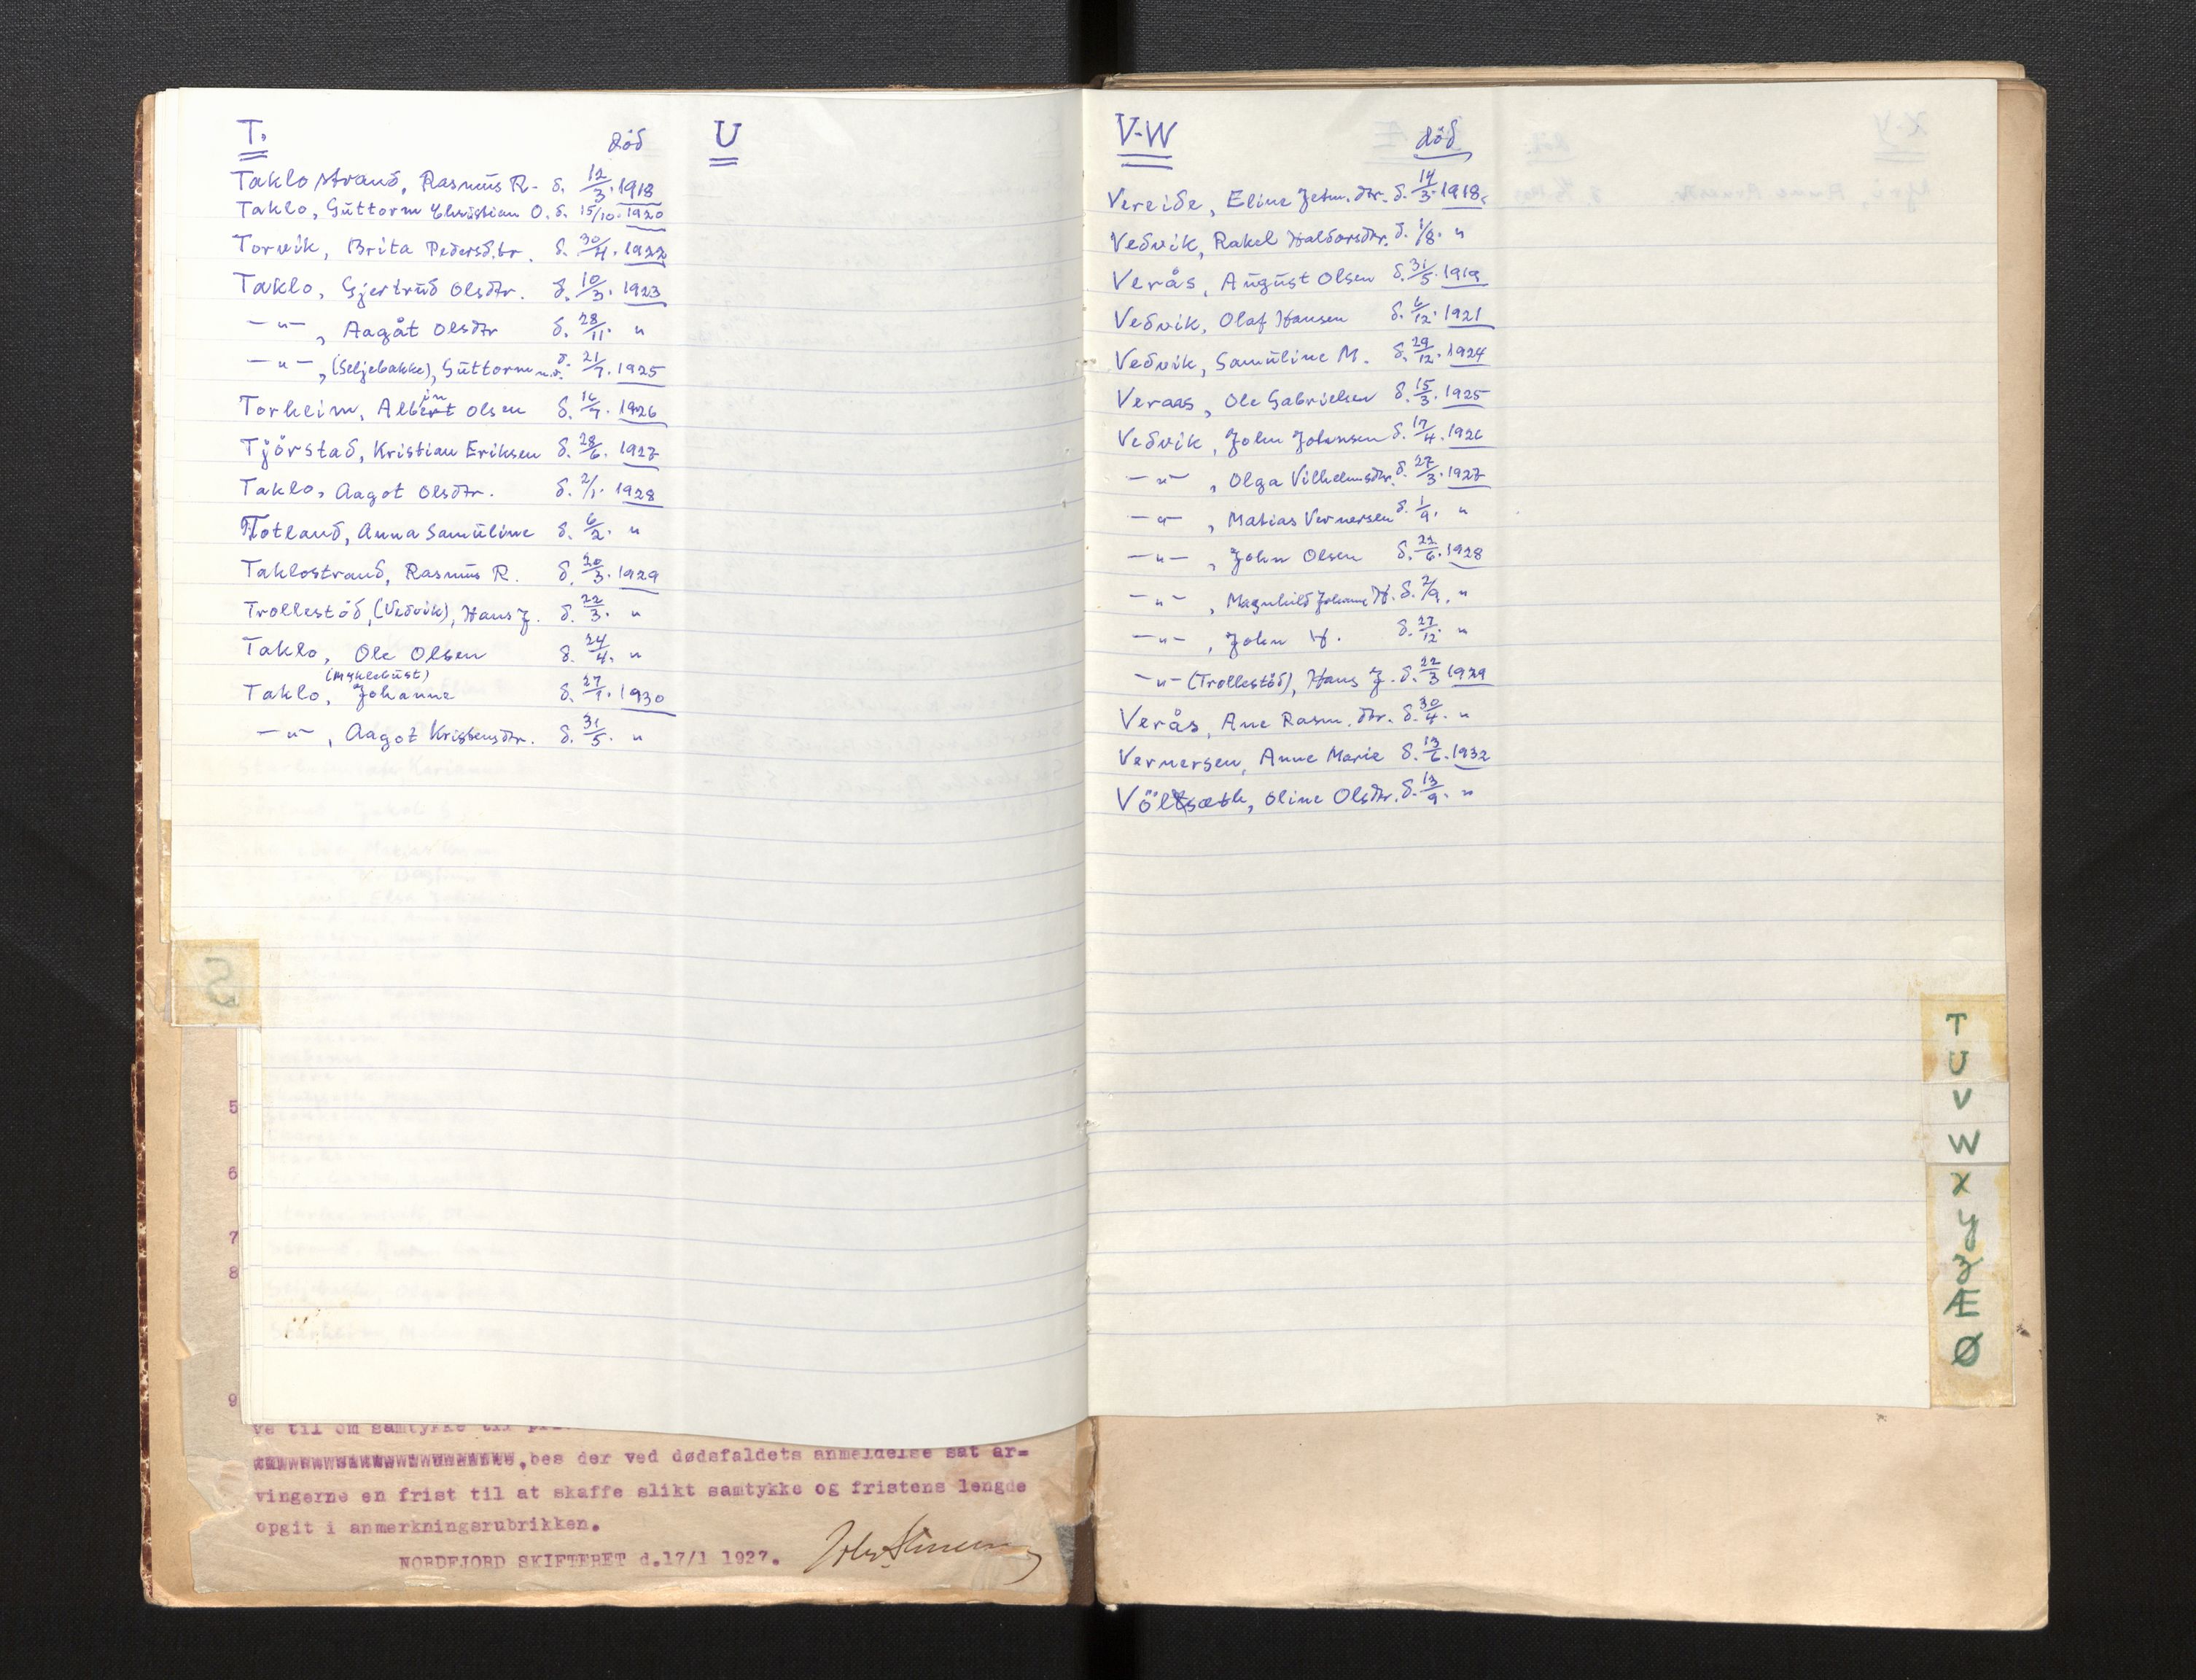 T.
död
U
Taklostrand, Rasmus R. d. 12/3. 1918
Taklo, Guttorm Christian O. d. 15/10. 1920
Torvik, Brita Pedersd.tr. d. 30/4. 1922
Taklo, Gjertrud Olsdtr. d. 10/3. 1923
—"— , Aagåt Olsdtr d. 28/11. "
—"— , (Seljebakke), Guttorm d. 21/7. 1925
Torheim, Albert Olsen d. 16/7. 1926
Tjörstad, Kristian Eriksen d. 28/6. 1927
Taklo, Aagot Olsdtr. d. 2/1. 1928
Totland, Anna Samuline d. 6/2. "
Taklostrand, Rasmus R. d. 20/3. 1929
Trollestöd, (Vedvik), Hans J. d. 22/3. "
Taklo, Ole Olsen d. 24/4. "
(Myklebust)
Taklo, Johanne d. 27/1. 1930
—"— , Aagot Kristensdtr. d. 31/5. "
V-W
död
Vereide, Eline d. 14/3. 1918.
Vedvik, Rakel Haldorsdtr. d. 1/8. "
Verås, August Olsen d. 31/5. 1919
Vedvik, Olaf Hansen d. 6/12. 1921
Vedvik, Samuline M. d. 29/12. 1924
Veraas, Ole Gabrielsen d. 15/3. 1925
Vedvik, John Johansen d. 17/4. 1926
—"— , Olga Vilhelmsdtr. d. 27/3. 1927
—"— , Matias Vernersen d. 1/9. "
—"— , John Olsen d. 22/6. 1928
—"— , Magnhild Johanne H. d. 2/9. "
—"— , John H. d. 27/12. "
—"— (Trollestöd), Hans J. d. 22/3 1929
Verås, Ane Rasm. dtr. d. 30/4. "
Vernersen, Anne Marie d. 13/6. 1932
Völtsæth, Oline Olsdtr. d. 13/9. "
S
T
U
V
W
X
Y
Z
Æ
Ø
5
6
7
8
9
ve til om samtykke til
bes der ved dødsfaldets anmeldelse sat ar=
vingerne en frist til at skaffe slikt samtykke og fristens lengde
opgit i anmerkningsrubrikken.
NORDFJORD SKIFTERET d.17/1 1927.